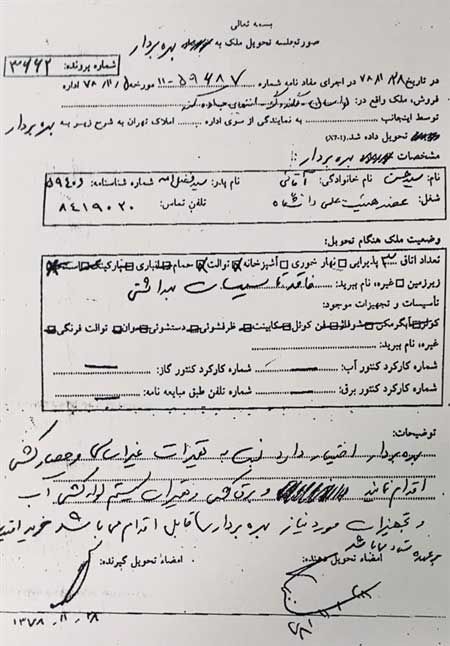 بسمه تعالی
صورتجلسه تحویل ملک به بهره بردار
شماره پرونده: ۳۶۶۲
در تاریخ ۷۸/۱۱/۲۸ در اجرای مفاد نامه شماره ۵۹۶۸۷-۱۱ مورخه ۷۸/۱۱/ اداره
فروش، ملک واقع در: لواسان
توسط اینجانب به نمایندگی از سوی اداره املاک تهران به شرح زیر به بهره بردار
تحویل داده شد. (X7-1)
مشخصات بهره بردار:
نام: سید حسن نام خانوادگی: آقائی نام پدر: سید فضل اله شماره شناسنامه: ۵۹۴۰۶
شغل: عضو هیئت علمی دانشگاه تلفن تماس: ۸۴۱۹۰۳۰
وضعیت ملک هنگام تحویل:
تعداد اتاق پذیرایی نهار خوری آشپزخانه توالت حمام انباری پارکینگ
زیرزمین غیره، نام ببرید: فاقد تاسیسات بهداشتی
تأسیسات و تجهیزات موجود:
کولر آبگرمکن شوفاژ فن کوئل کابینت ظرفشوئی دستشوئی وان توالت فرنگی
غیره، نام ببرید:
شماره کارکرد کنتور آب: شماره کارکرد کنتور گاز:
شماره کارکرد کنتور برق: شماره تلفن طبق مبایعه نامه:
توضیحات:
بهره بردار اختیار دارد نسبت به تعمیرات غیر اساسی و حصارکشی
اقدام نماید و برق کشی و تعمیرات سیستم لوله کشی آب
و تجهیزات مورد نیاز بهره بردار قابل اقدام می باشد
امضاء تحویل دهنده: امضاء تحویل گیرنده:
۱۳۷۸/۱۱/۲۸